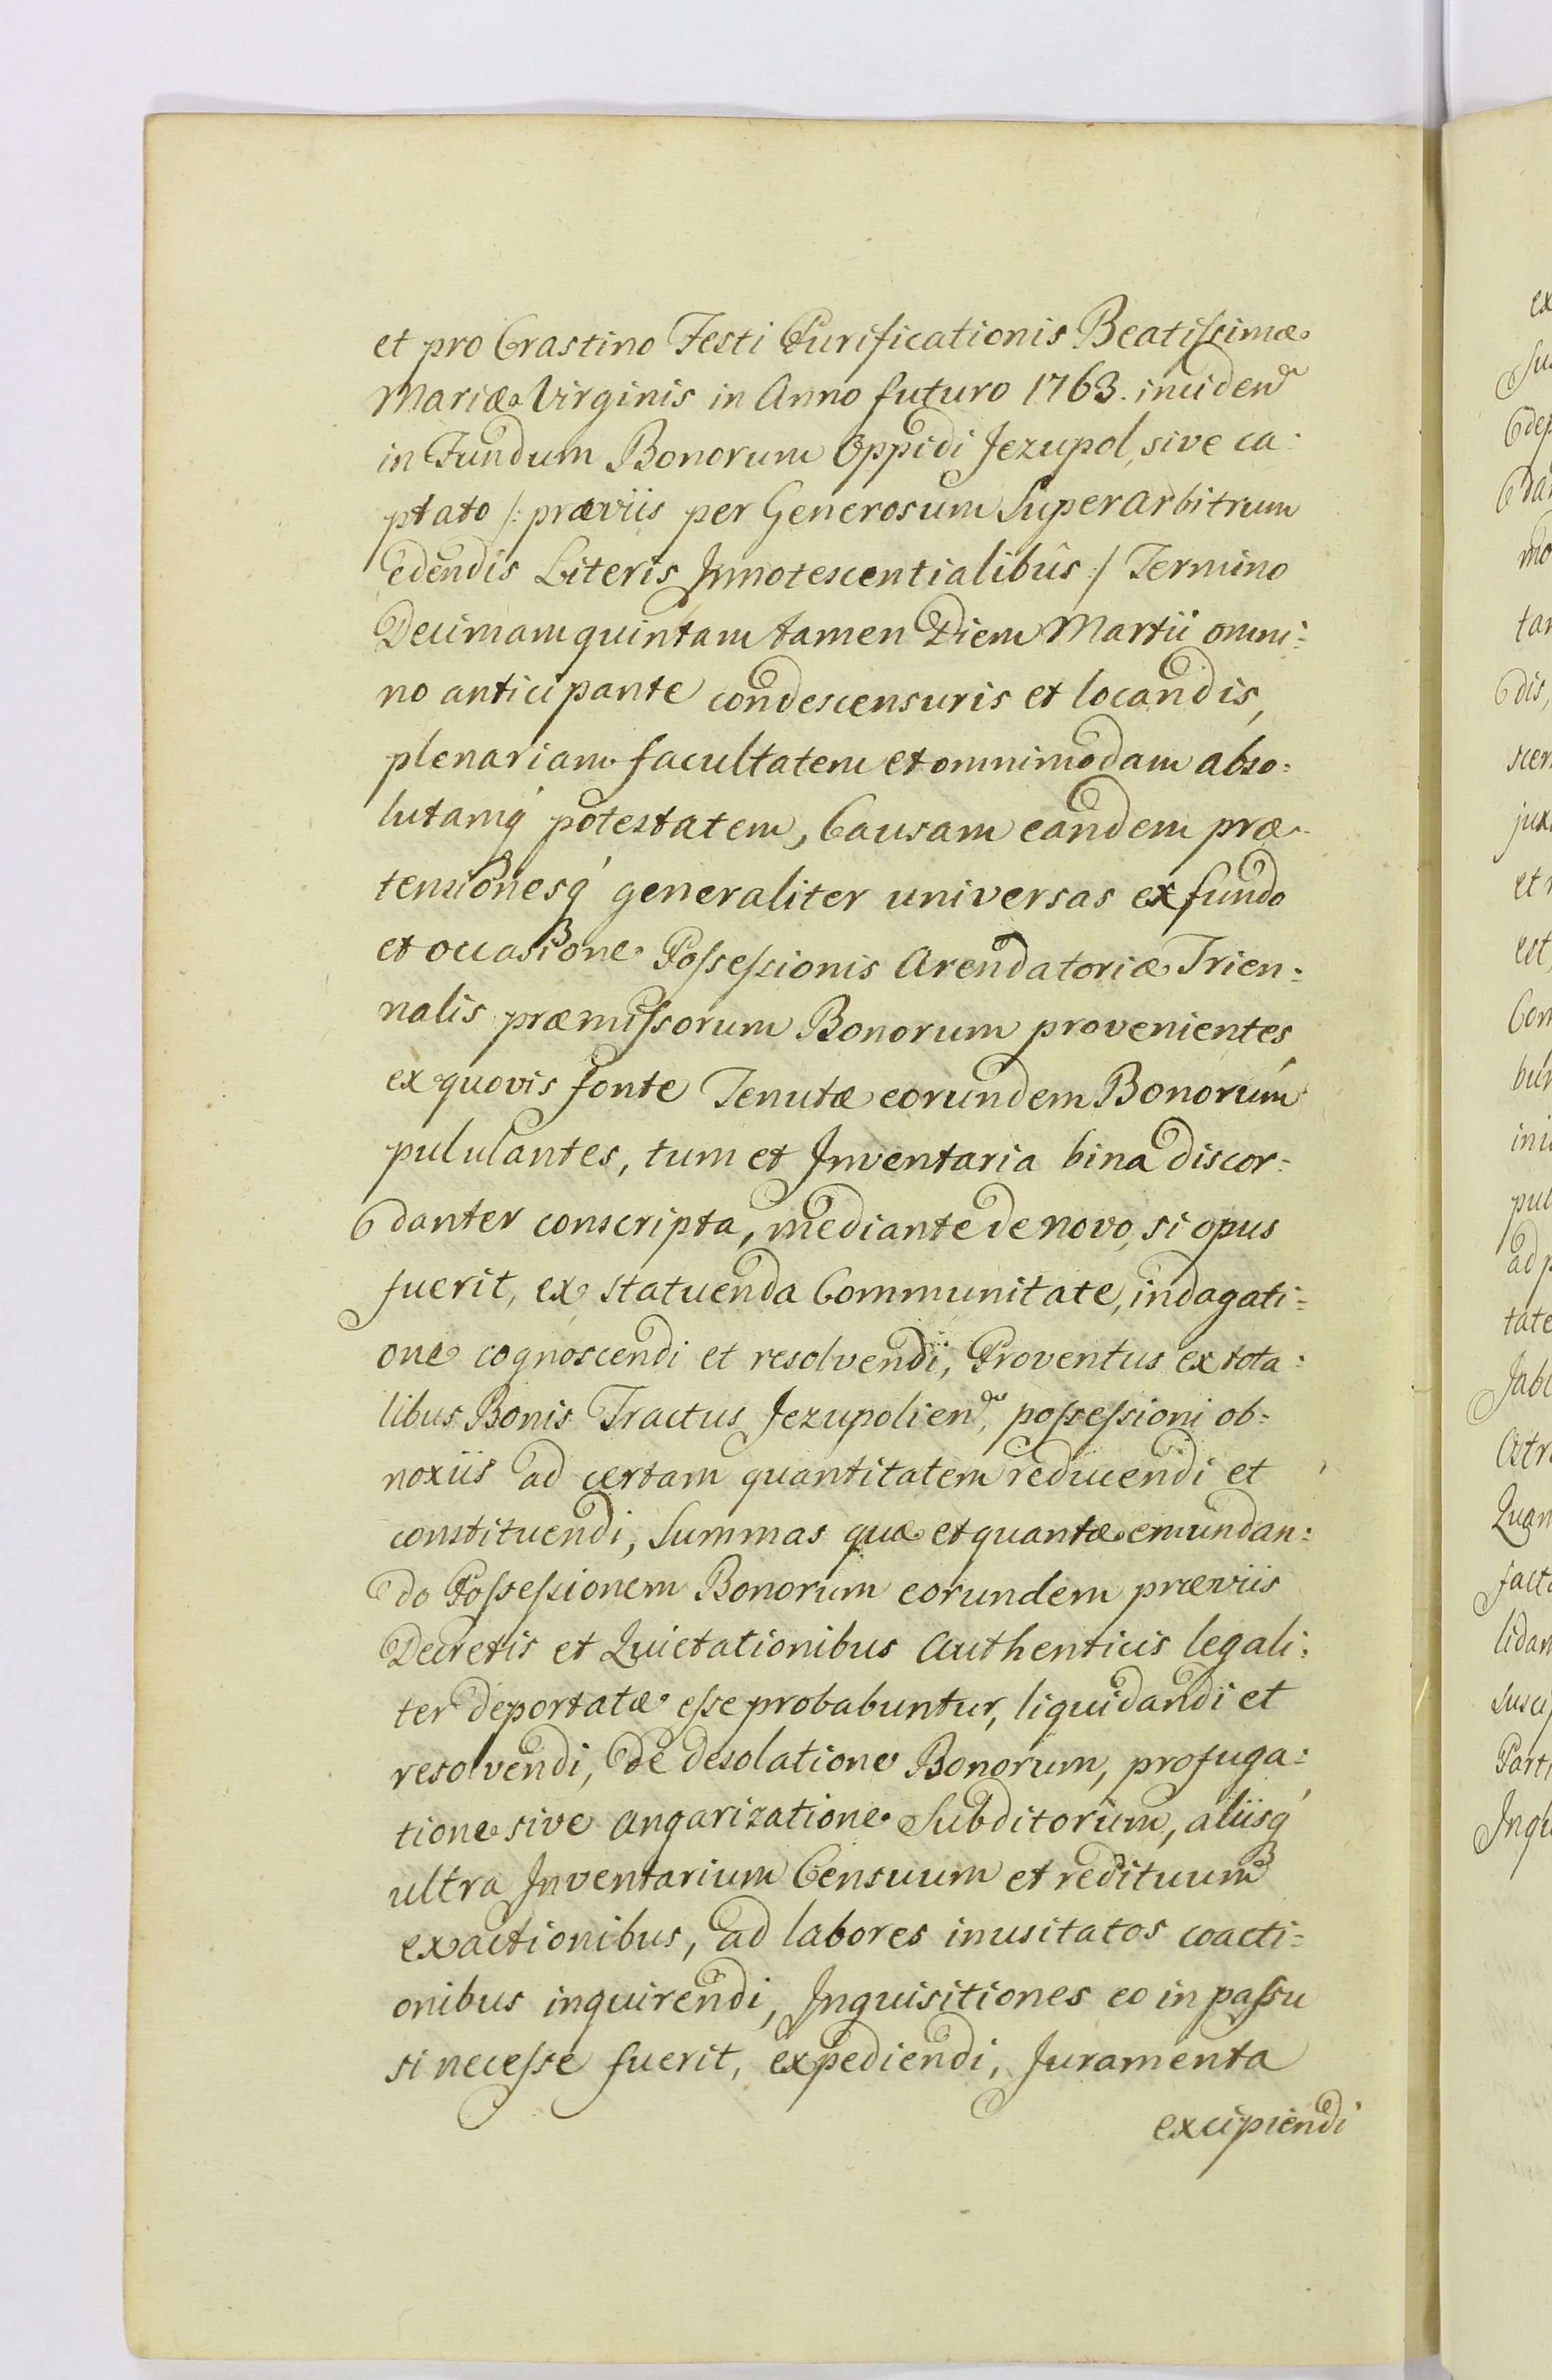 et pro Crastino Festi Purificationis Beatissimæ
Mariæ Virginis in Anno futuro 1763. inciden
in Fundum Bonorum Oppidi Jezupol, sive ca:
ptato /: præviis per Generosum Superarbitrum
edendis Literis Innotescentialibus :/ Termino
Decimamquintam tamen Diem Martii omni:
no anticipante condescensuris et locandis,
plenariam facultatem et omnimodam abso:
lutamq́ potestatem, Causam eandem præ:
tensionesq́ generaliter universas ex fundo
et occasione Possessionis Arendatoriæ Trien:
nalis præmissorum Bonorum provenientes,
ex quovis fonte Tenutæ eorundem Bonorum
pululantes, tum et Inventaria bina discor:
danter conscripta, mediante de novo, si opus
fuerit, ex statuenda Communitate, indagati:
one cognoscendi et resolvendi, Proventus ex tota:
libus Bonis Tractus Jezupolien, possessioni ob:
noxiis ad certam quantitatem reducendi et
constituendi, Summas quæ et quantæ emundan:
do Possessionem Bonorum eorundem præviis
Decretis et Quietationibus Authenticis legali:
ter deportatæ esse probabuntur, liquidandi et
resolvendi, de desolatione Bonorum, profuga:
tione sive angarizatione Subditorum, aliisq́
ultra Inventarium Censuum et redituum
exactionibus, ad labores inusitatos coacti:
onibus inquirendi, Inquisitiones eo in passu
si necesse fuerit, expediendi, Juramenta
excipiendi